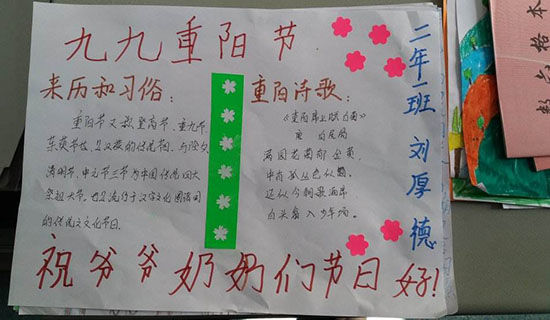 九九重阳节
来历和习俗:
重阳节又叫登高节、重九节、
茱萸节也是汉族的传统节日。与除夕、
清明节、中元节三节为中国传统四大
祭祖大节。也是流行于汉字文化圈诸国
的传统文化节日。
重阳诗歌:
《重阳席上赋白菊》
唐 白居易
满园花菊郁金黄,
中有孤丛色似霜。
还似今朝歌酒席
白头翁入少年场。
二年一班 刘厚德
祝爷爷奶奶们节日好!
格本